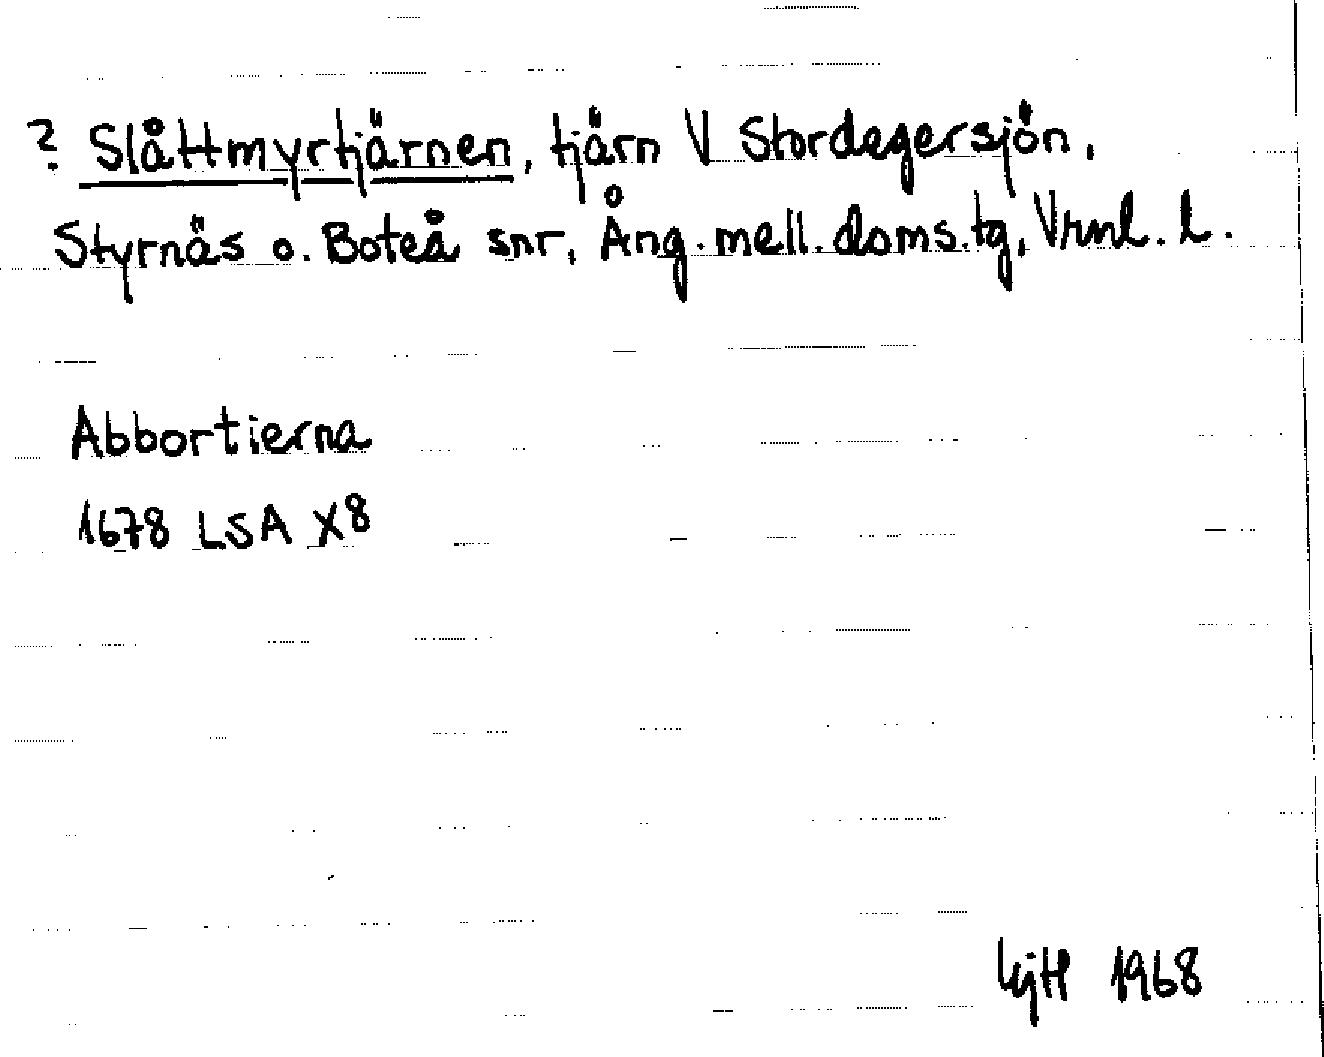 ? Slåttmyrtjärnen, tjärn V Stordegersjön,
Styrnäs o. Boteå snr, Ång. mell. doms.tg, Vrnl. l.
Abbortierna
1678 LSA X8
1968